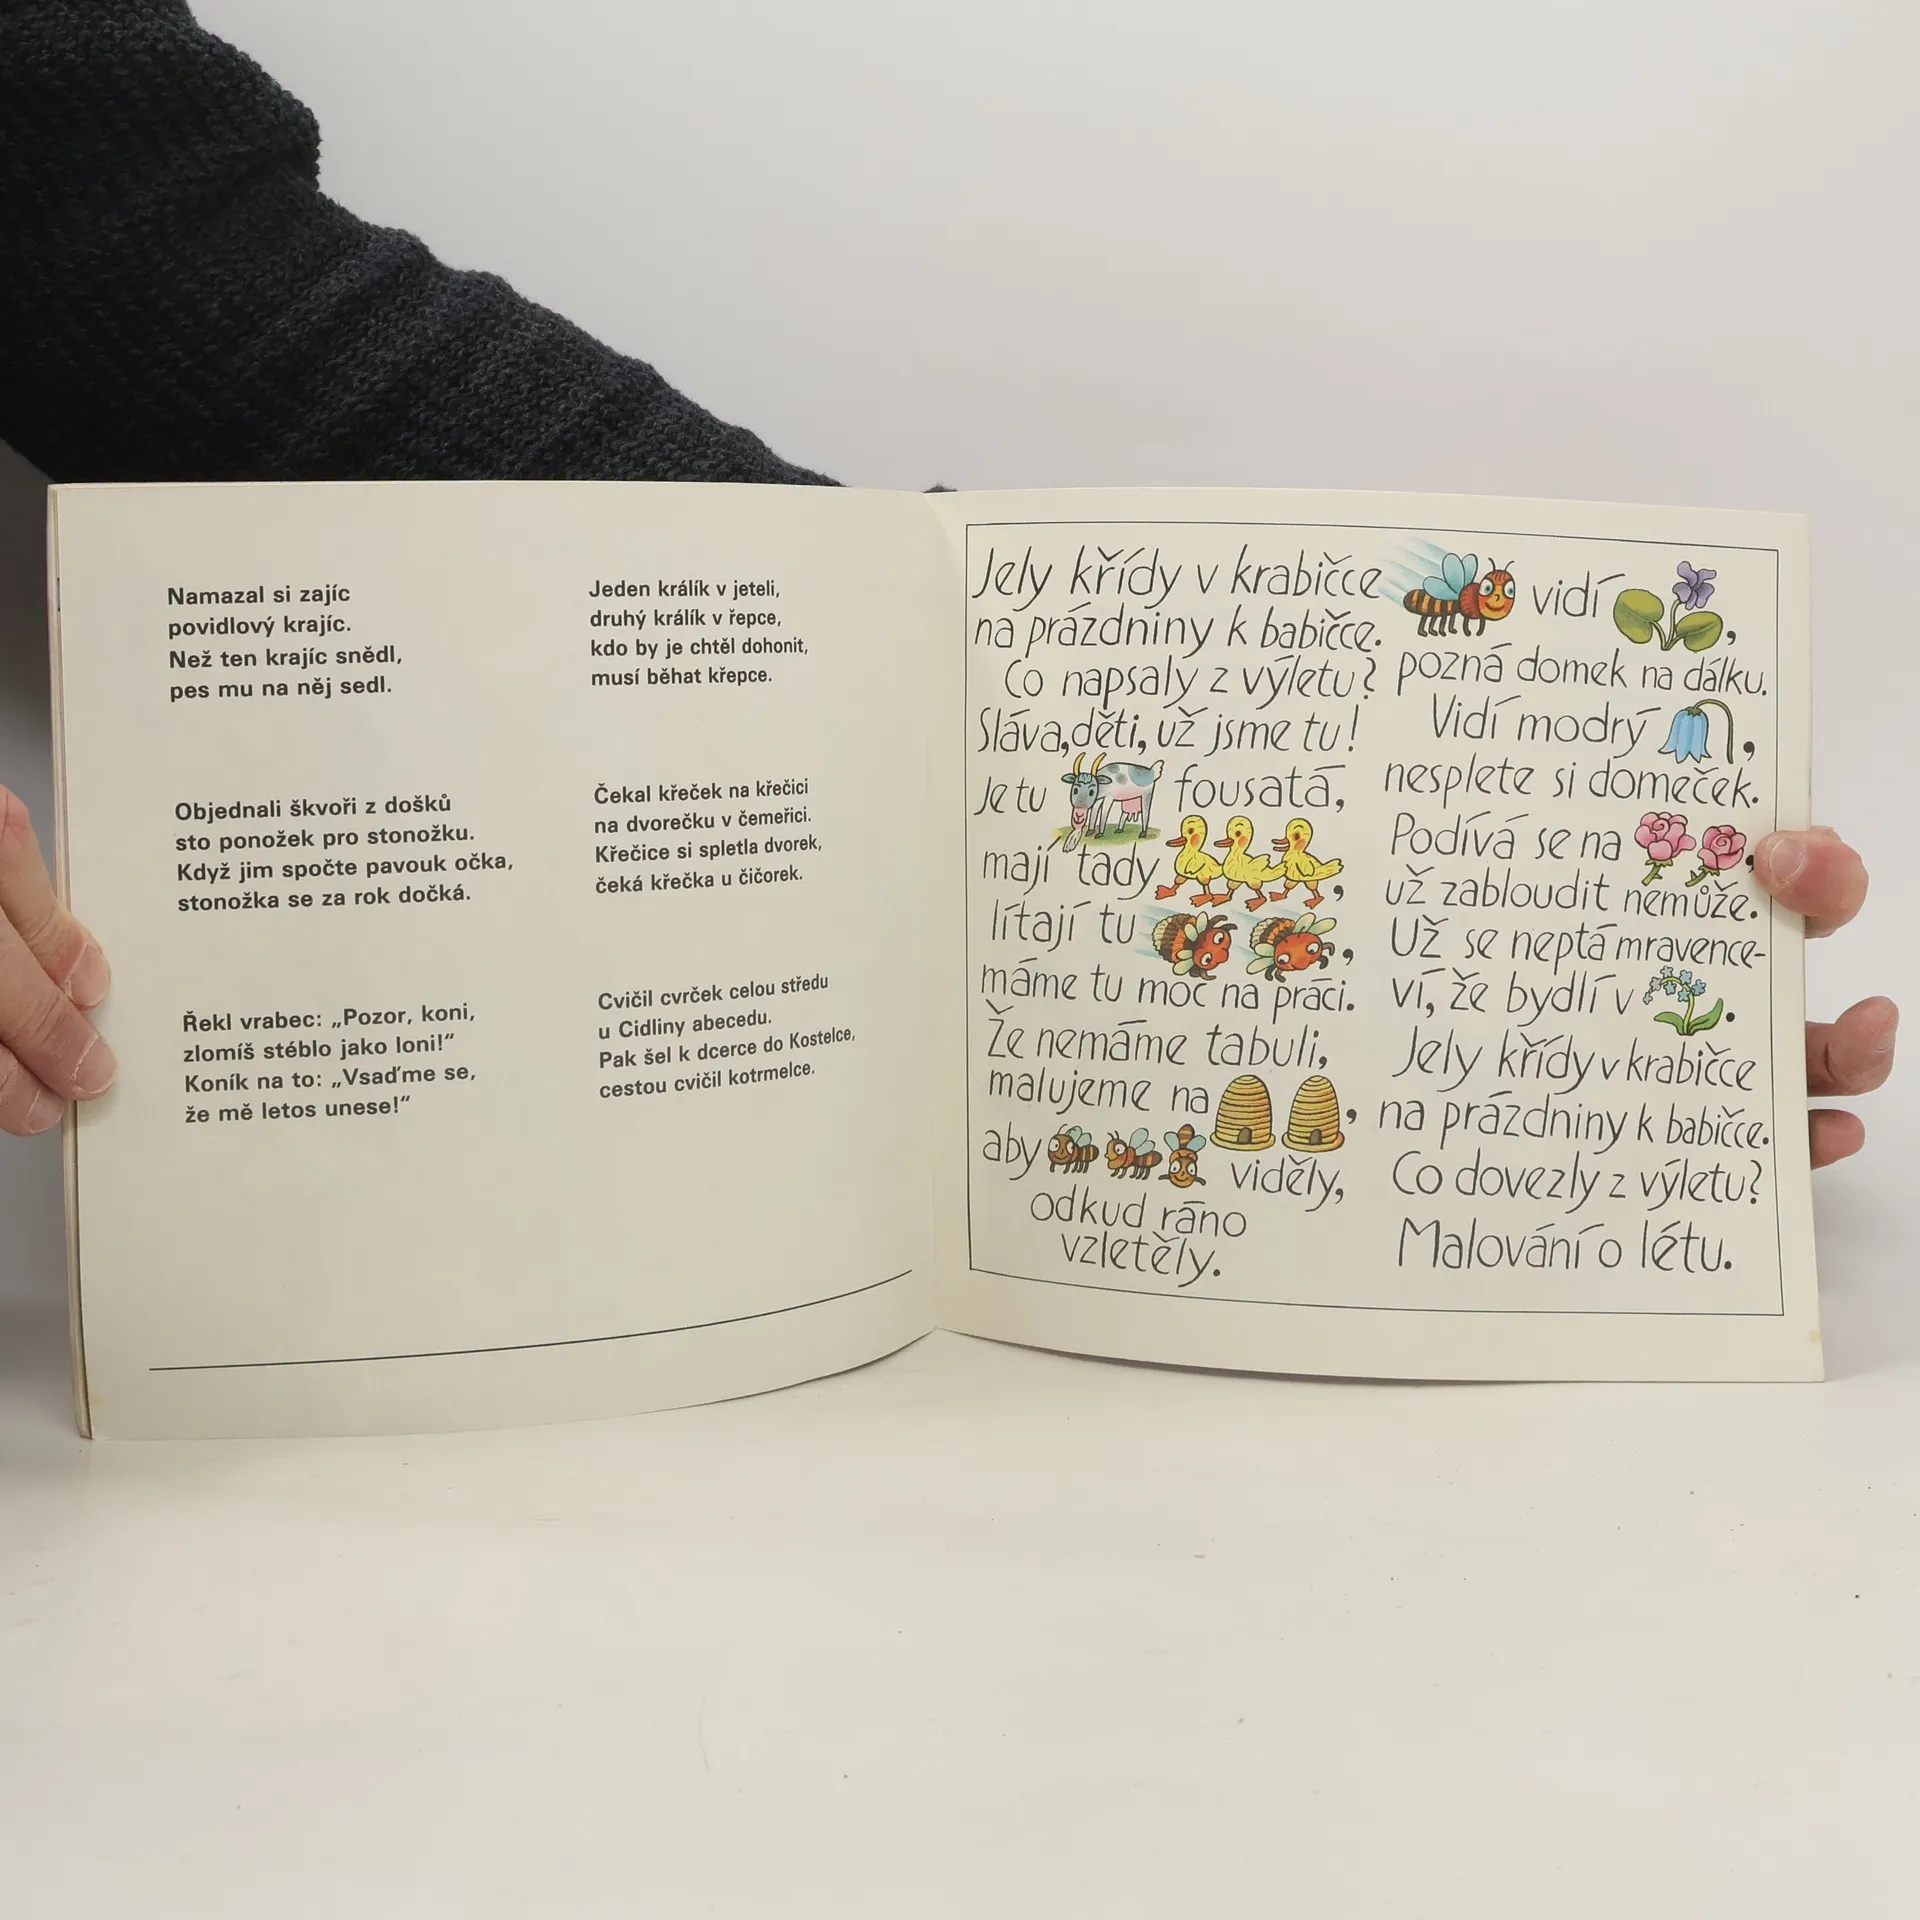 Namazal si zajíc
povidlový krajíc.
Než ten krajíc snědl,
pes mu na něj sedl.
Objednali škvoři z došků
sto ponožek pro stonožku.
Když jim spočte pavouk očka,
stonožka se za rok dočká.
Řekl vrabec: „Pozor, koni,
zlomíš stéblo jako loni!“
Koník na to: „Vsaďme se,
že mě letos unese!“
Jeden králík v jeteli,
druhý králík v řepce,
kdo by je chtěl dohonit,
musí běhat křepce.
Čekal křeček na křečici
na dvorečku v čemeřici.
Křečice si spletla dvorek,
čeká křečka u čičorek.
Cvičil cvrček celou středu
u Cidliny abecedu.
Pak šel k dcerce do Kostelce,
cestou cvičil kotrmelce.
Jely křídy v krabičce
na prázdniny k babičce.
Co napsaly z výletu?
Sláva,děti, už jsme tu!
Je tu fousatá,
mají tady ,
lítají tu ,
máme tu moc na práci.
Že nemáme tabuli,
malujeme na ,
aby viděly,
odkud ráno
vzletěly.
vidí ,
pozná domek na dálku.
Vidí modrý ,
nesplete si domeček.
Podívá se na ,
už zabloudit nemůže.
Už se neptá mravence-
ví, že bydlí v .
Jely křídy v krabičce
na prázdniny k babičce.
Co dovezly z výletu?
Malování o létu.